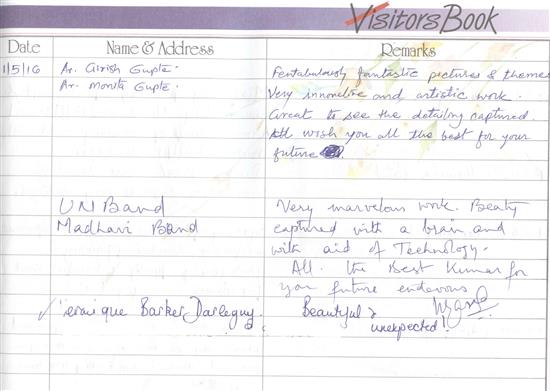 Visitors Book
Date Name & Address Remarks
1/5/16 Ar. Girish Gupta. Fentabulously fantastic pictures & themes
Ar. Monita Gupta. Very innovative and artistic work.
Great to see the detailing captured.
All wish you all the best for your
future
U N Band Very marvelous work. Beaty
Madhavi Band captured with a brain and
with aid of Technology.
All. the Best Kumar for
you future endeavous
Barker-Darleguy. Beautiful &
unexpected!